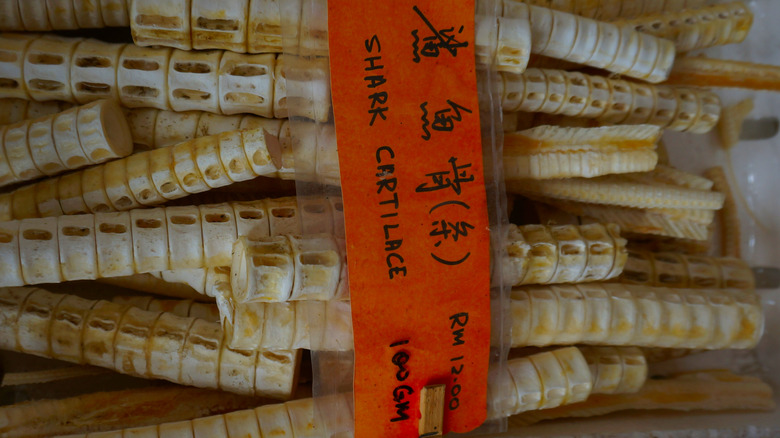 鯊魚骨(条)
SHARK CARTILACE
RM 12.00
100GM